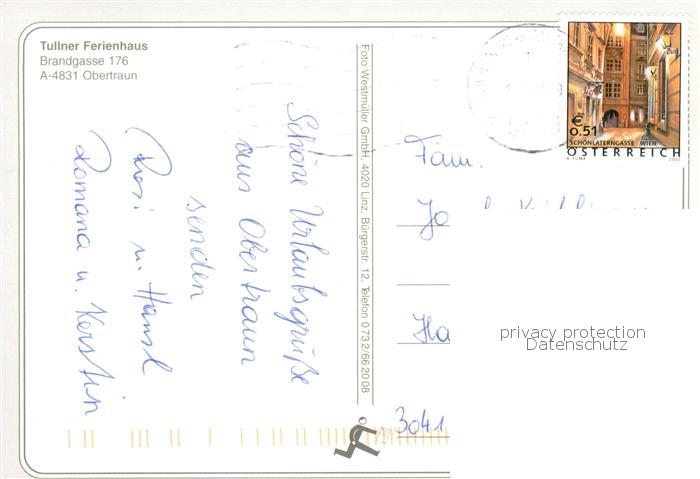 Tullner Ferienhaus
Brandgasse 176
A-4831 Obertraun
Schöne Urlaubsgrüße
aus Obertraun
senden
Rosi u. Hansl
Romana u. Kerstin
Foto Westmüller GmbH, 4020 Linz, Bürgerstr. 12, Telefon 0732/662008
€
0.51
SCHÖNLATERNGASSE WIEN
ÖSTERREICH
A. TUMA 2002
Fam.
Jo
Ha
3041
privacy protection
Datenschutz